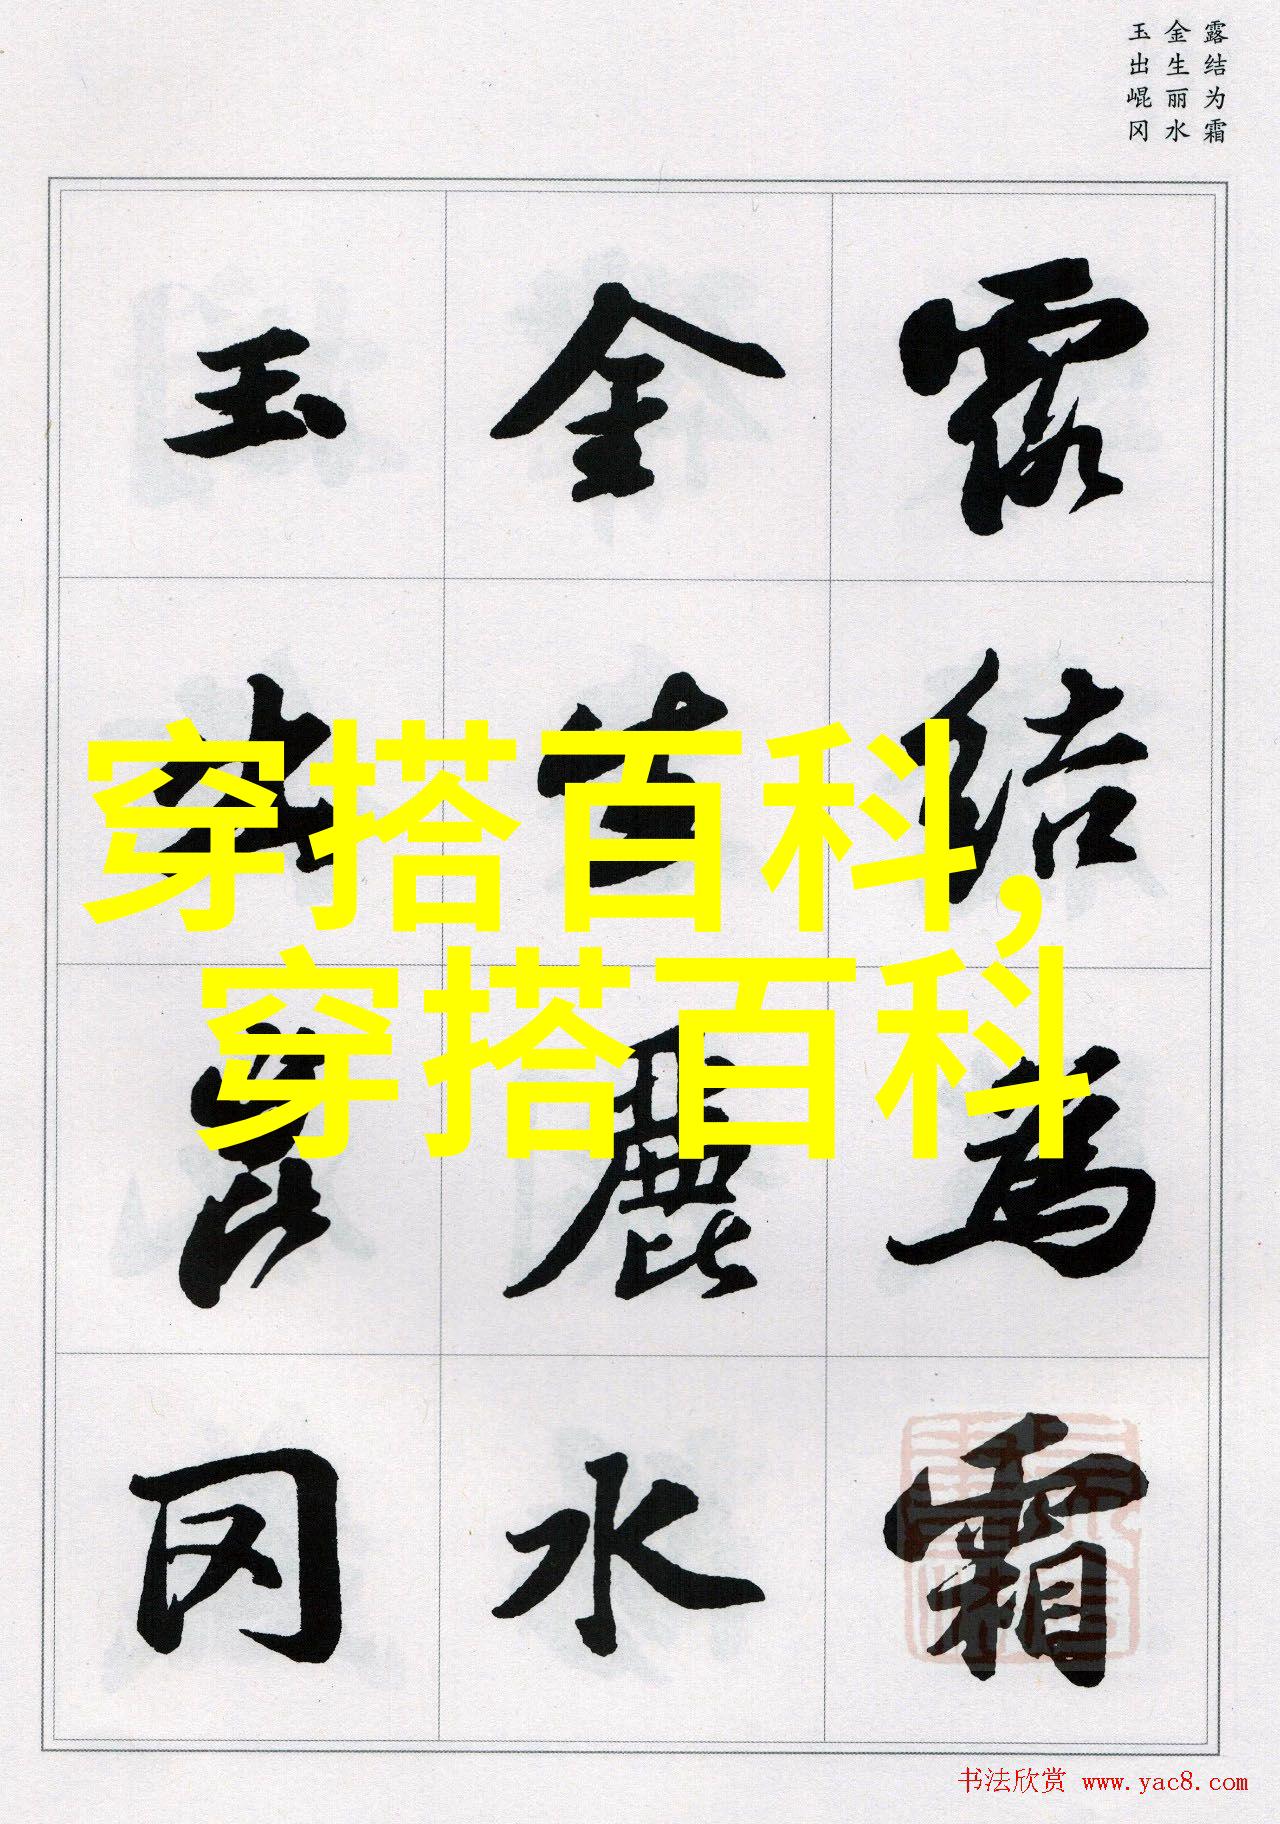 露结为霜
金生丽水
玉出崐冈
露結為霜
金生麗水
玉出崑冈
穿搭百科,
穿搭百科
书法欣赏 www.yac8.com